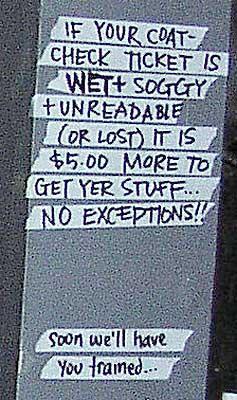 IF YOUR COAT-
CHECK TICKET IS
WET + SOGGY
+ UNREADABLE
(OR LOST) IT IS
$5.00 MORE TO
GET YER STUFF...
NO EXCEPTIONS!!
Soon we'll have
you trained...